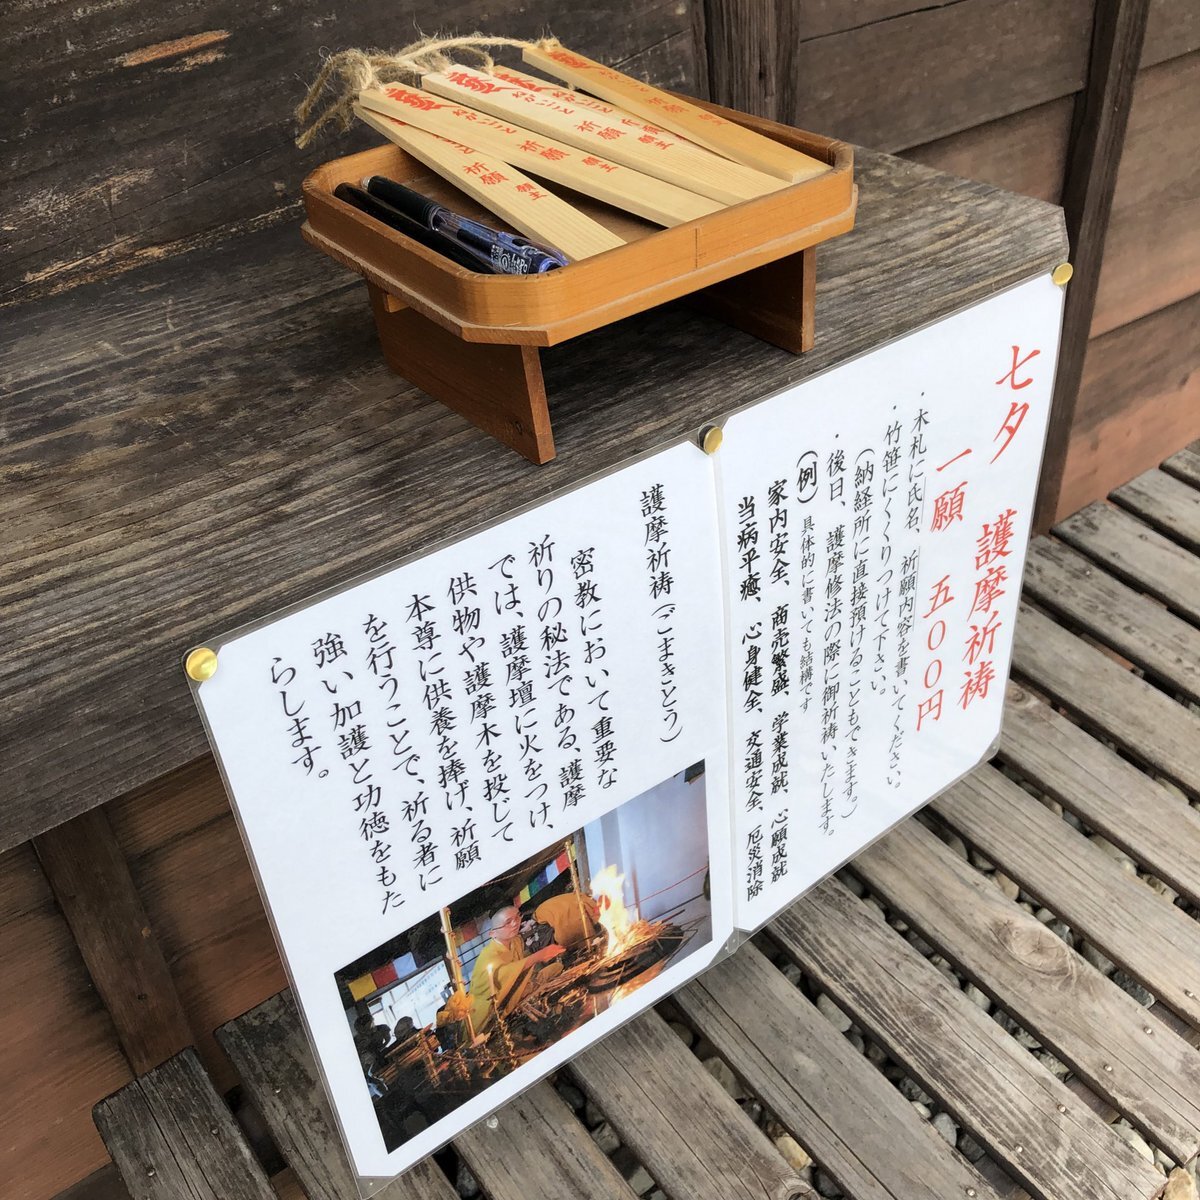 七夕 護摩祈祷
一願 五〇〇円
・木札に氏名、祈願内容を書いてください。
・竹笹にくくりつけて下さい。
(納経所に直接預けることもできます。)
・後日、護摩修法の際に御祈祷いたします。
(例) 具体的に書いても結構です
家内安全、商売繁盛、学業成就、心願成就
当病平癒、心身健全、交通安全、厄災消除
護摩祈祷(ごまきとう)
密教において重要な
祈りの秘法である、護摩
では、護摩壇に火をつけ、
供物や護摩木を投じて
本尊に供養を捧げ、祈願
を行うことで、祈る者に
強い加護と功徳をもた
らします。
祈願 願主
祈願 願主
祈願 願主
祈願 願主